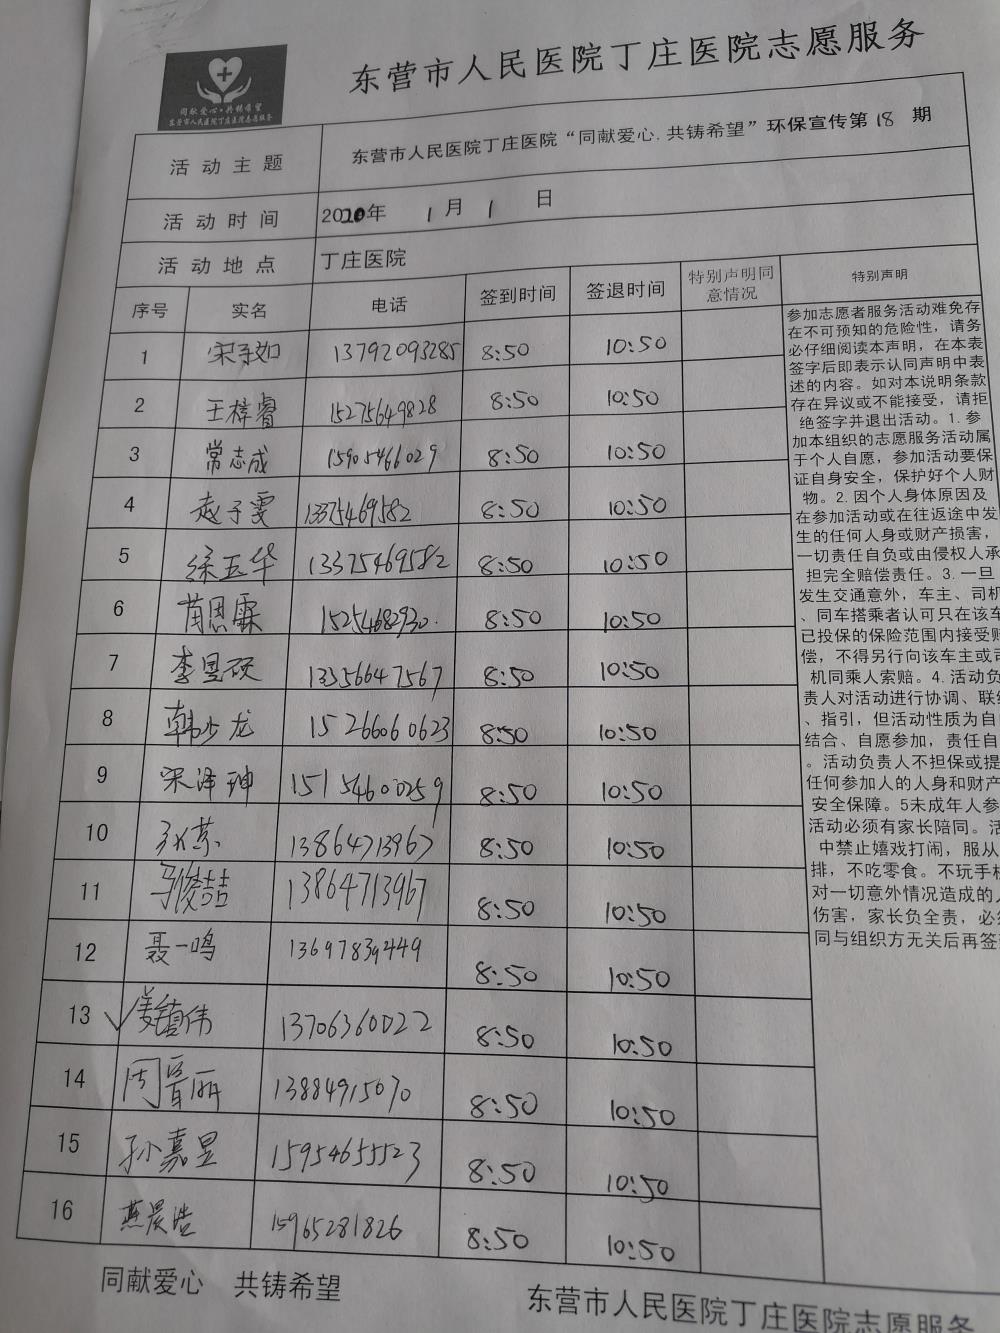 东营市人民医院丁庄医院志愿服务
同献爱心·共铸希望
东营市人民医院丁庄医院志愿服务
活动主题 东营市人民医院丁庄医院“同献爱心.共铸希望”环保宣传第18期
活动时间 2020年 1月 1日
活动地点 丁庄医院
序号 实名 电话 签到时间 签退时间 特别声明同意情况 特别声明
1 宋子如 13792093285 8:50 10:50
2 王梓睿 15275649828 8:50 10:50
3 常志成 15905466029 8:50 10:50
4 赵子雯 13375469582 8:50 10:50
5 徐玉华 13375469582 8:50 10:50
6 苘思霖 15254682930. 8:50 10:50
7 李昱硕 13356647567 8:50 10:50
8 韩少龙 15266060623 8:50 10:50
9 宋泽珅 15154600259 8:50 10:50
10 13864713967 8:50 10:50
11 马俊喆 13864713967 8:50 10:50
12 聂一鸣 13697839449 8:50 10:50
13 姜镇伟 13706360022 8:50 10:50
14 周晋丽 13884915070 8:50 10:50
15 孙嘉昱 15954655523 8:50 10:50
16 燕晨浩 15965281826 8:50 10:50
参加志愿者服务活动难免存
在不可预知的危险性，请务
必仔细阅读本声明，在本表
签字后即表示认同声明中表
述的内容。如对本说明条款
存在异议或不能接受，请拒
绝签字并退出活动。1.参
加本组织的志愿服务活动属
于个人自愿，参加活动要保
证自身安全，保护好个人财
物。2.因个人身体原因及
在参加活动或在往返途中发
生的任何人身或财产损害，
一切责任自负或由侵权人承
担完全赔偿责任。3.一旦
发生交通意外，车主、司机
、同车搭乘者认可只在该车
已投保的保险范围内接受赔
偿，不得另行向该车主或司
机同乘人索赔。4.活动负
责人对活动进行协调、联络
、指引，但活动性质为自由
结合、自愿参加，责任自
。活动负责人不担保或提
任何参加人的人身和财产
安全保障。5未成年人参
活动必须有家长陪同。活
中禁止嬉戏打闹，服从
排，不吃零食。不玩手机
对一切意外情况造成的人
伤害，家长负全责，必须
同与组织方无关后再签
同献爱心 共铸希望
东营市人民医院丁庄医院志愿服务